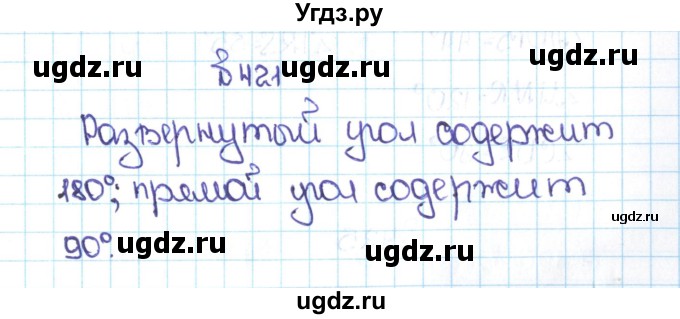 Угдз.ру
ugdz.ru В 421 ugdz.ru ugdz.ru
Развернутый угол содержит
180°; прямой угол содержит
ugdz.ru ugdz.ru
ugdz.ru
90°. ugdz.ru ugdz.ru
ugdz.ru